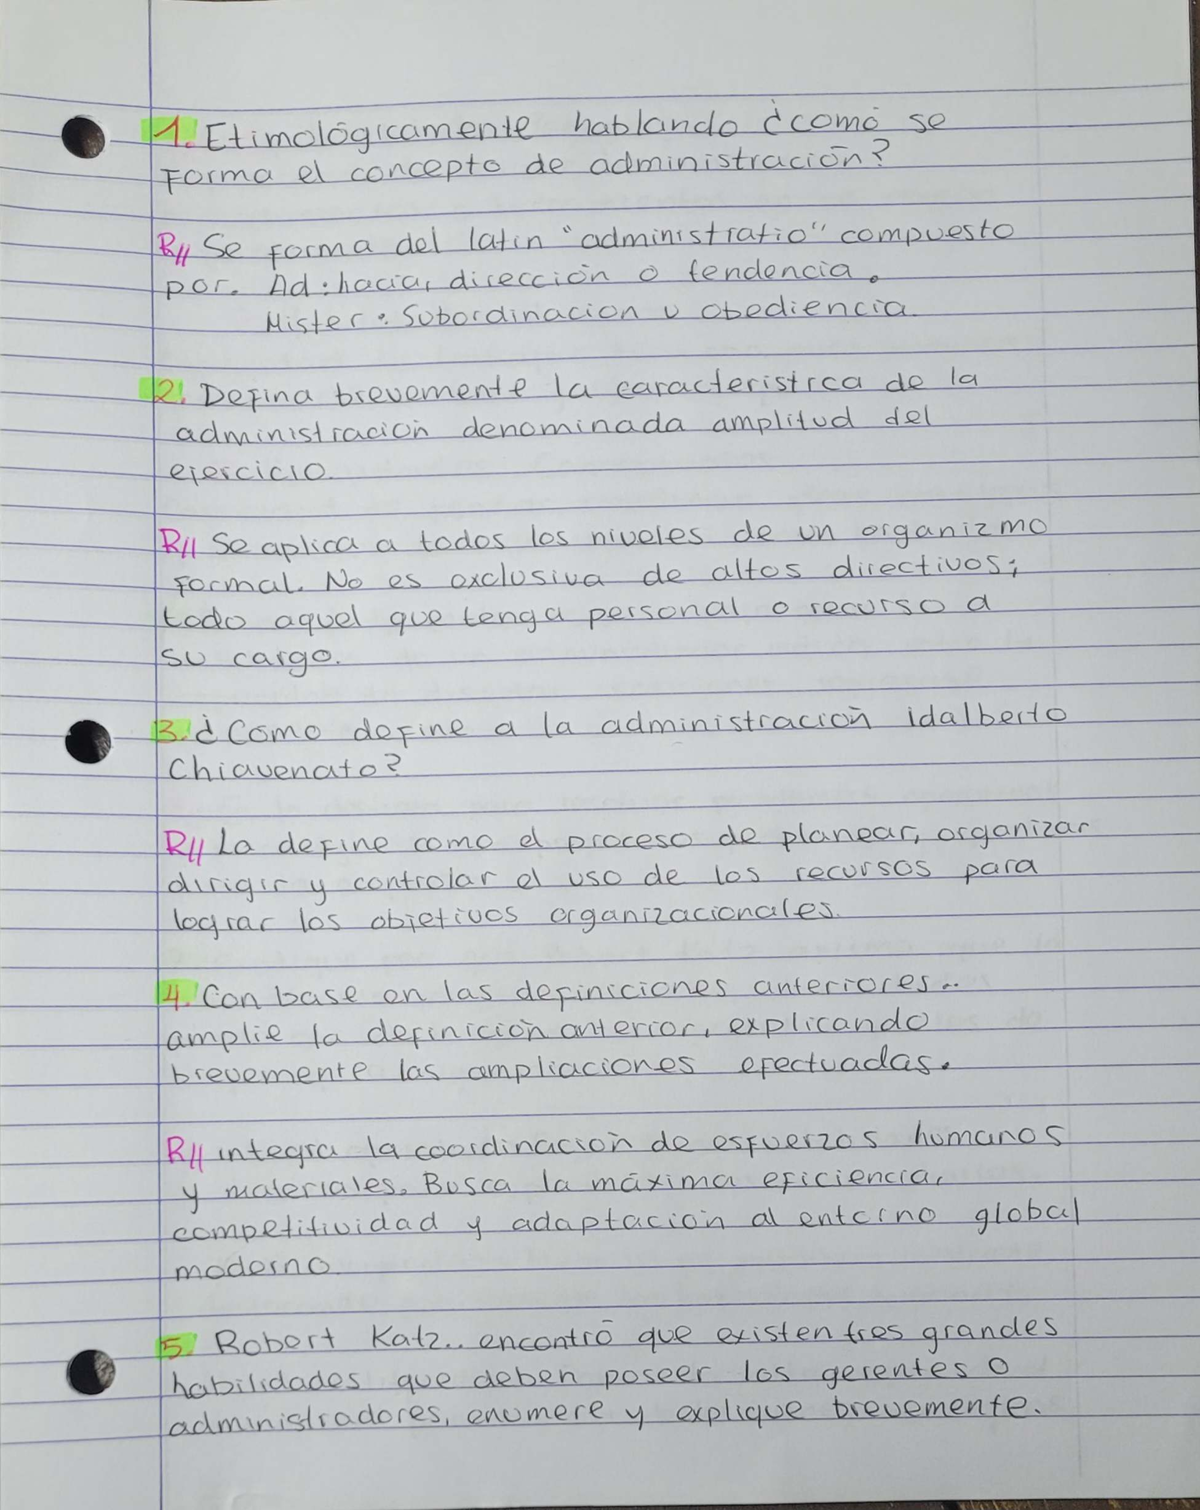 1. Etimológicamente hablando ¿como se
Forma el concepto de administración?
R// Se forma del latin "administratio" compuesto
por. Ad: hacia, dirección o tendencia.
Mister: Subordinacion u obediencia.
2. Defina brevemente la caracteristica de la
administración denominada amplitud del
ejercicio.
R// Se aplica a todos los niveles de un organizmo
formal. No es exclusiva de altos directivos;
todo aquel que tenga personal o recurso a
su cargo.
3. ¿Como define a la administración idalberto
Chiavenato?
R// La define como el proceso de planear, organizar
dirigir y controlar el uso de los recursos para
lograr los objetivos organizacionales.
4. Con base en las definiciones anteriores..
amplie la definición anterior, explicando
brevemente las ampliaciones efectuadas.
R// integra la coordinación de esfuerzos humanos
y materiales. Busca la máxima eficiencia,
competitividad y adaptación al entorno global
moderno.
5. Robert Katz.. encontró que existen tres grandes
habilidades que deben poseer los gerentes o
administradores, enumere y explique brevemente.